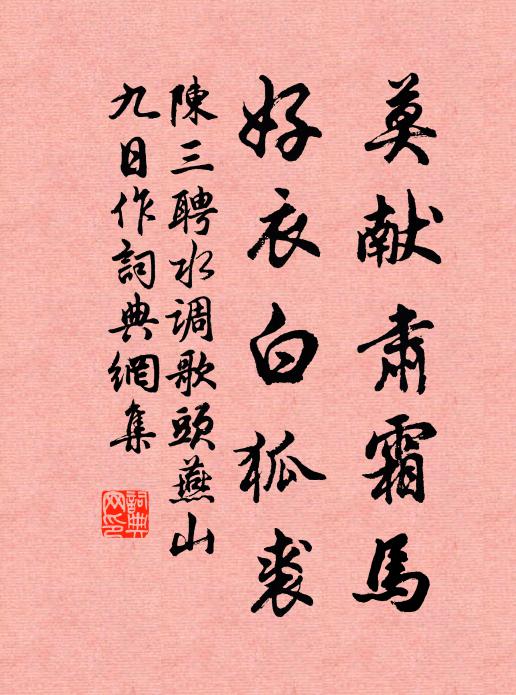 莫献肃霜馬
好衣白狐裘
陳三聘水调歌頭燕山
九日作詞典網集
詞典网印